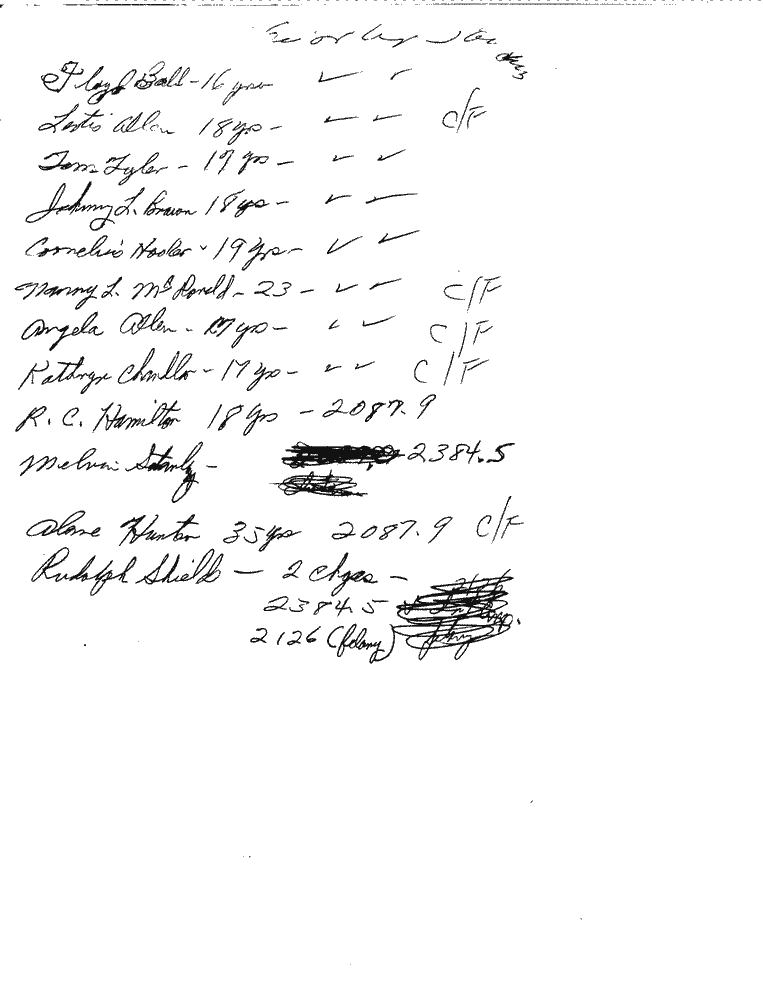 Floyd Ball - 16 yrs ✓ ✓
Allen 18 yrs - ✓ ✓ C/F
Tom Tyler - 17 yrs - ✓ ✓
Johnny L. Brown 18 yrs - ✓ ✓
Cornelius - 19 yrs - ✓ ✓
L. McDonald - 23 - ✓ ✓ C/F
Angela Allen - 17 yrs - ✓ ✓ C/F
Kathryn - 17 yrs - ✓ ✓ C/F
R. C. Hamilton 18 yrs - 2087.9
Melvin - 2384.5
Hunter 35 yrs 2087.9 C/F
Rudolph Shields - 2 chges -
2384.5
2126 (felony)